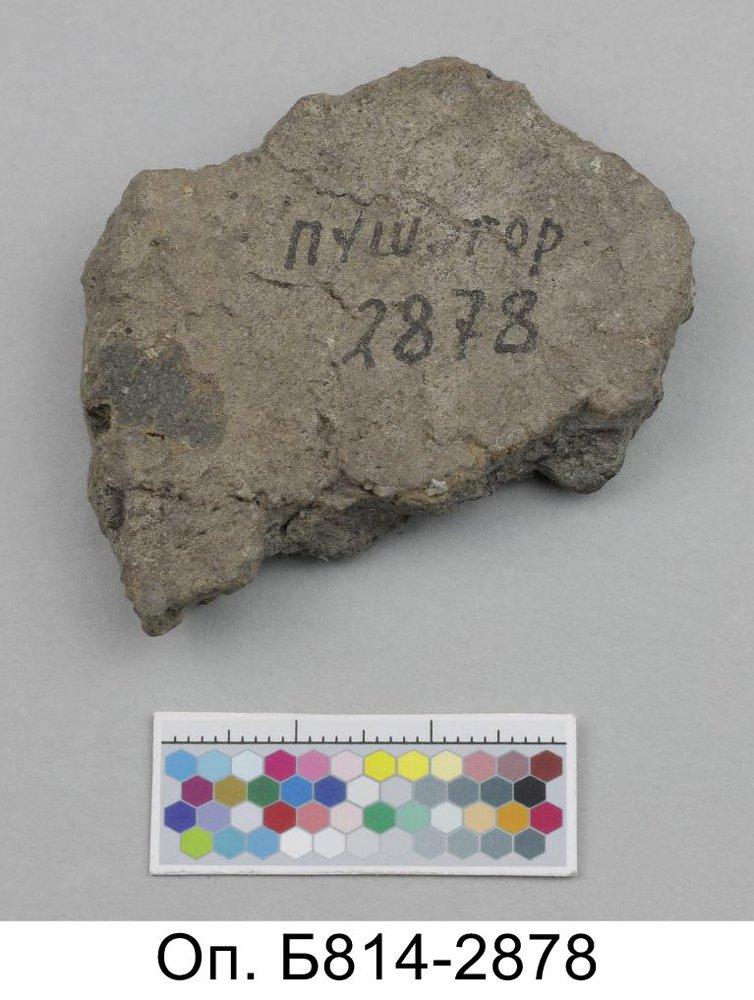 ПУШ. ГОР
2878
Оп. Б814-2878